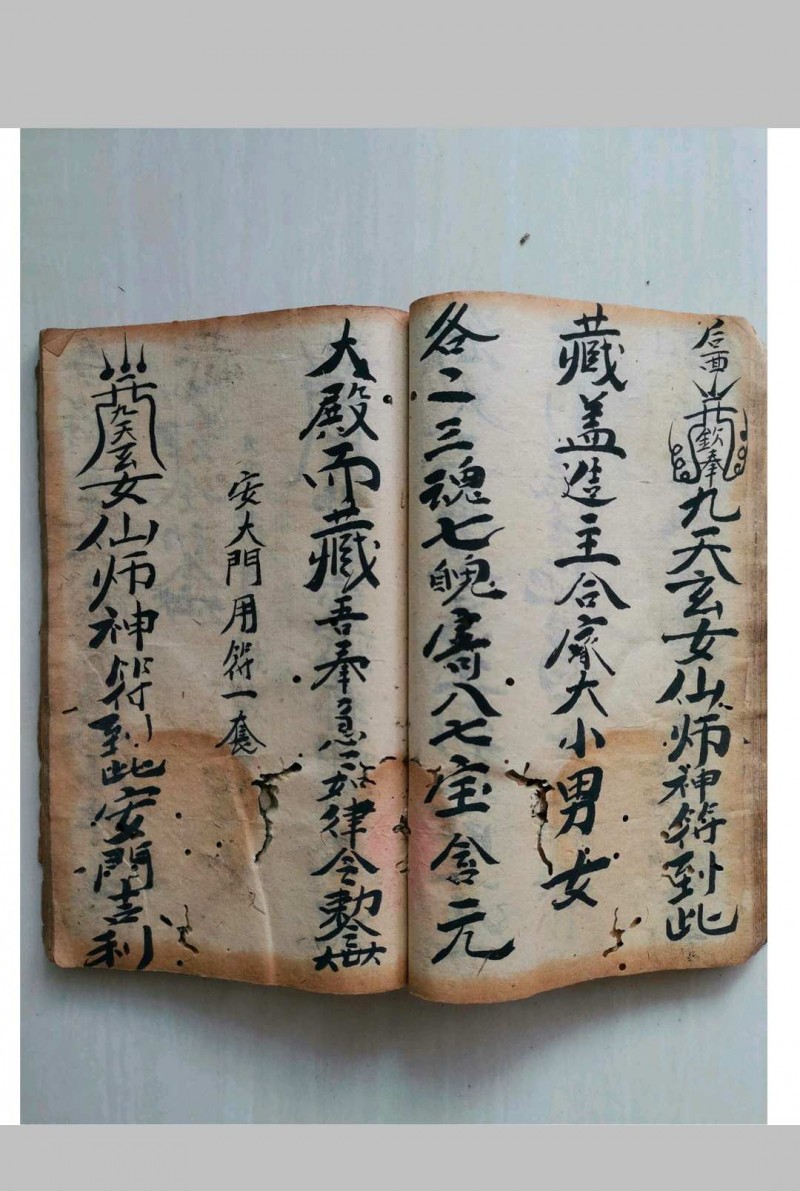 后面
钦奉九天玄女仙师神符到此
藏盖造主合家大小男女
各二三魂七魄寄八七宝含元
大殿而藏吾奉急如律令
安大門用符一套
九天玄女仙师神符到此安門吉利